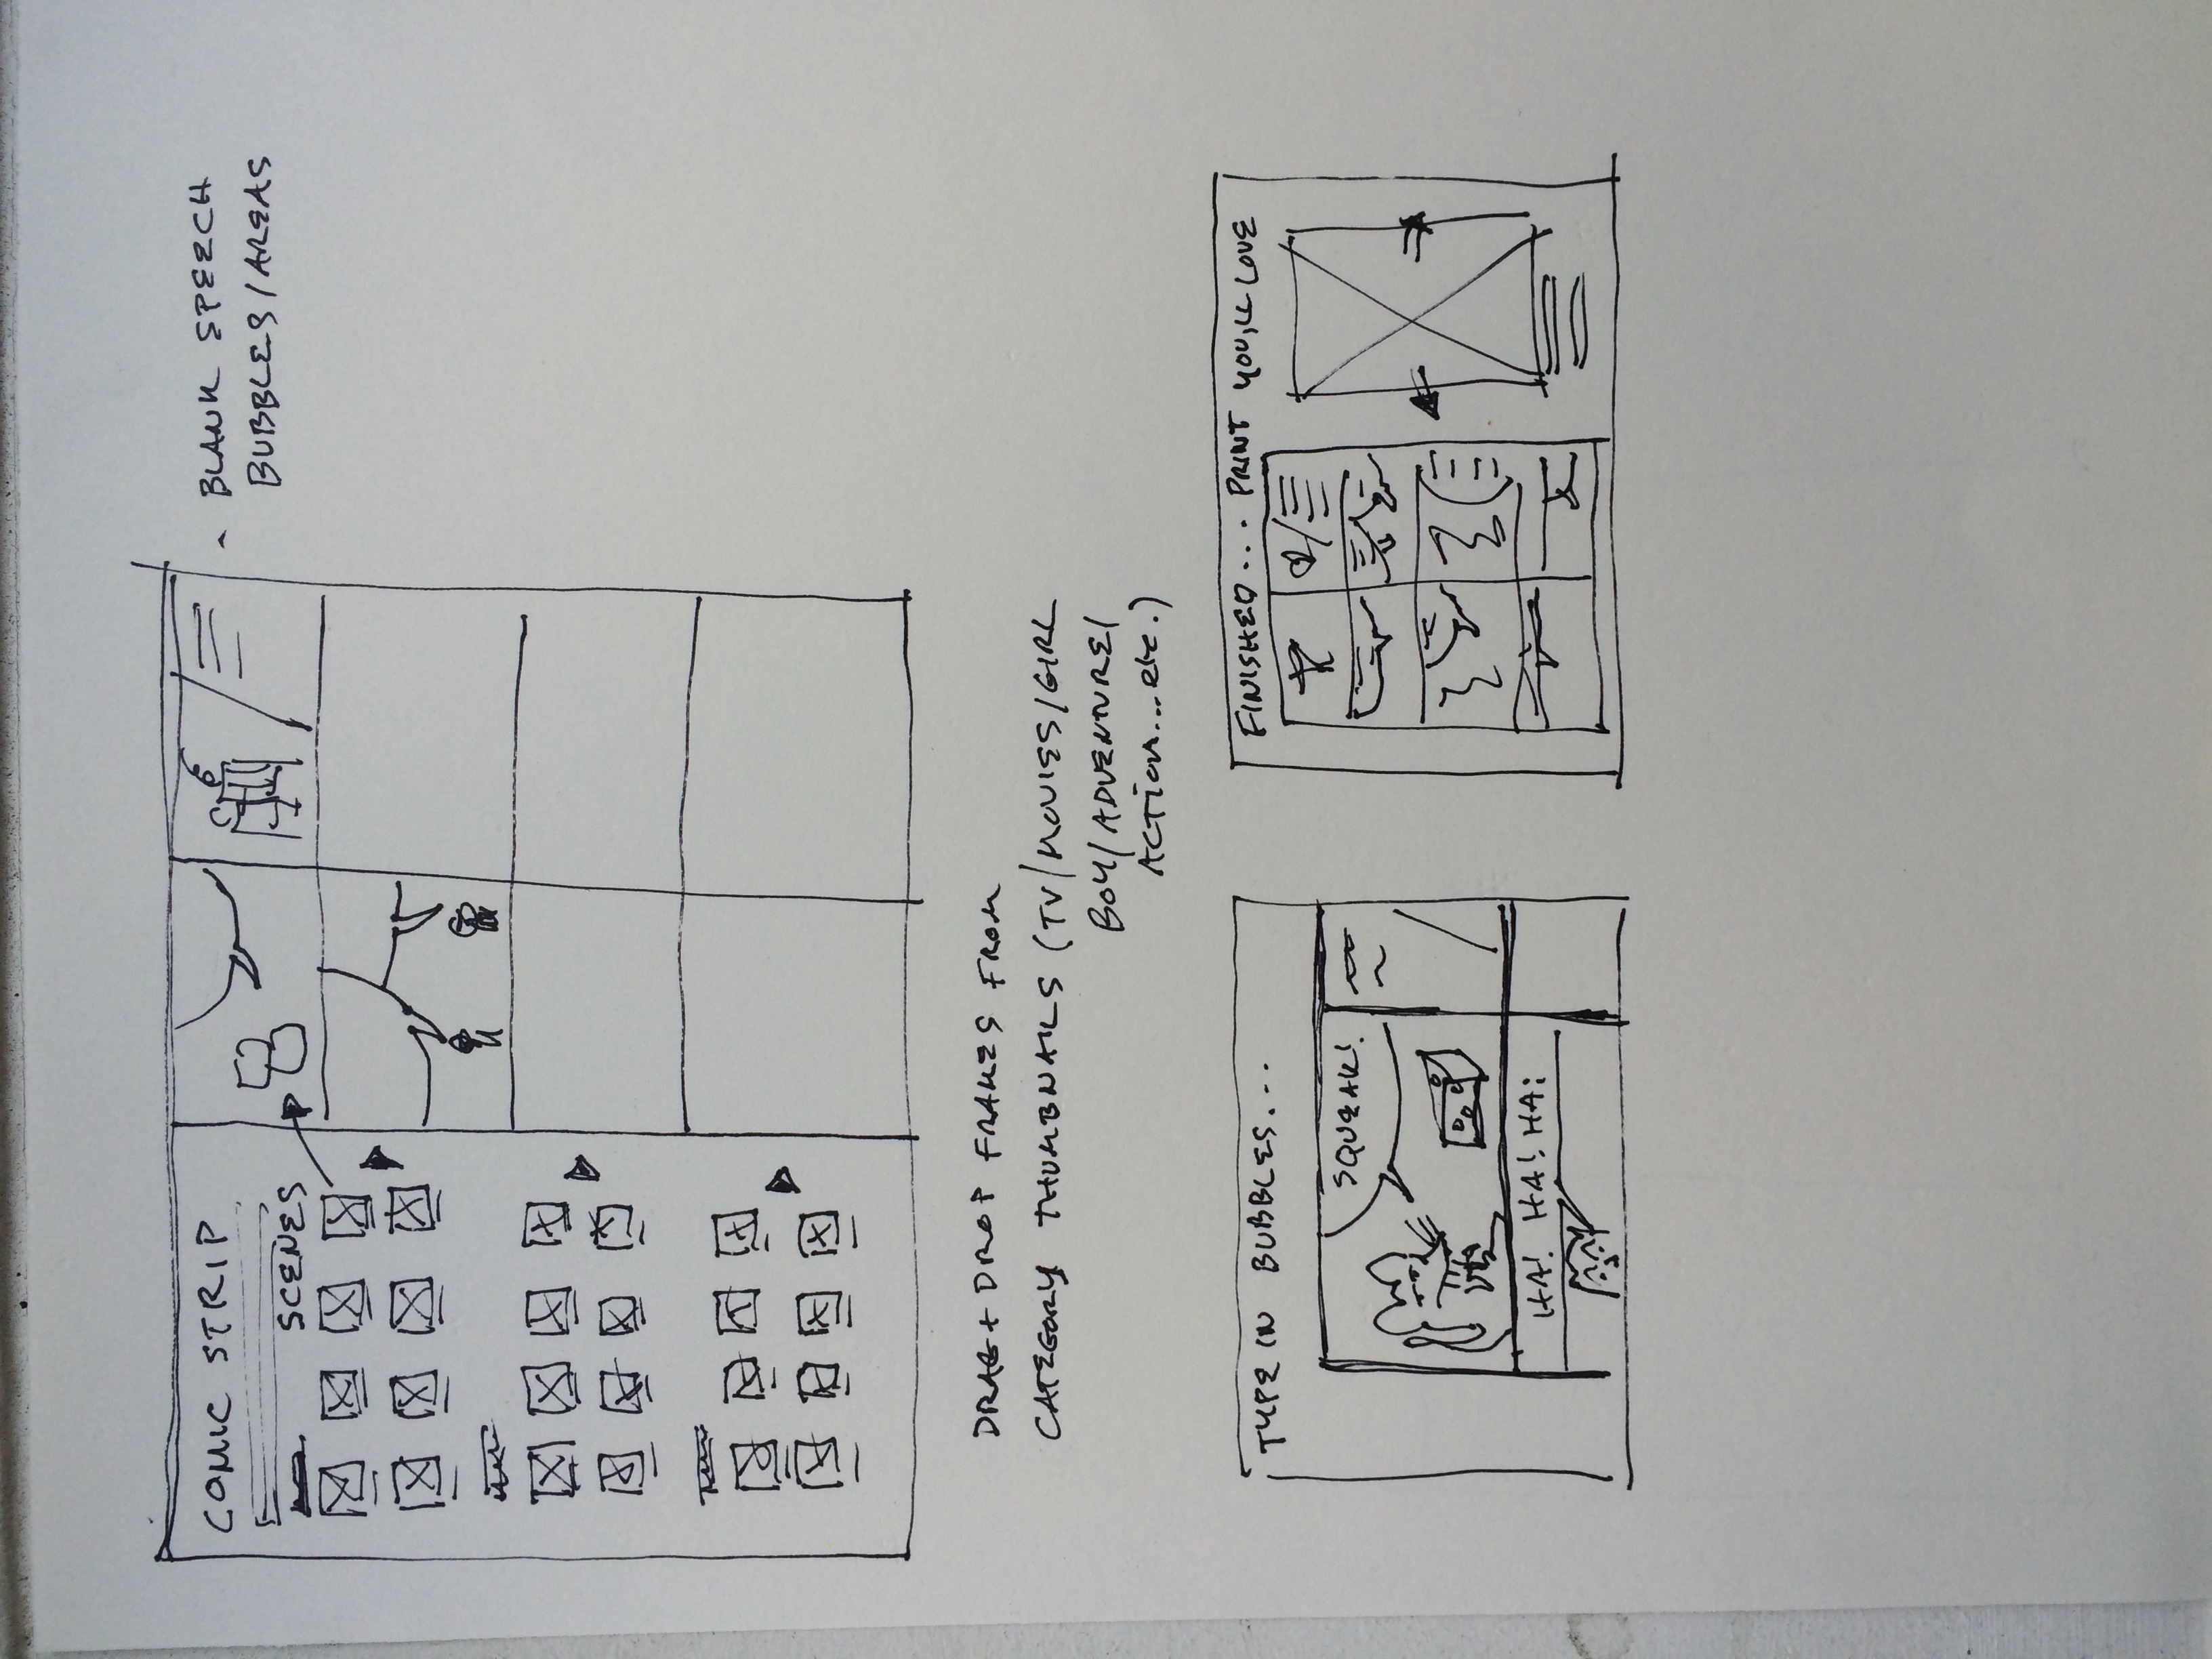 COMIC STRIP
SCENES
- BLANK SPEECH
BUBBLES / AREAS
DRAG + DROP FRAMES FROM
CATEGORY THUMBNAILS (TV/MOVIES/GIRL
BOY/ADVENTURE/
ACTION...etc.)
TYPE IN BUBBLES...
SQUEAK!
HA! HA! HA!
FINISHED... PRINT YOU'LL LOVE